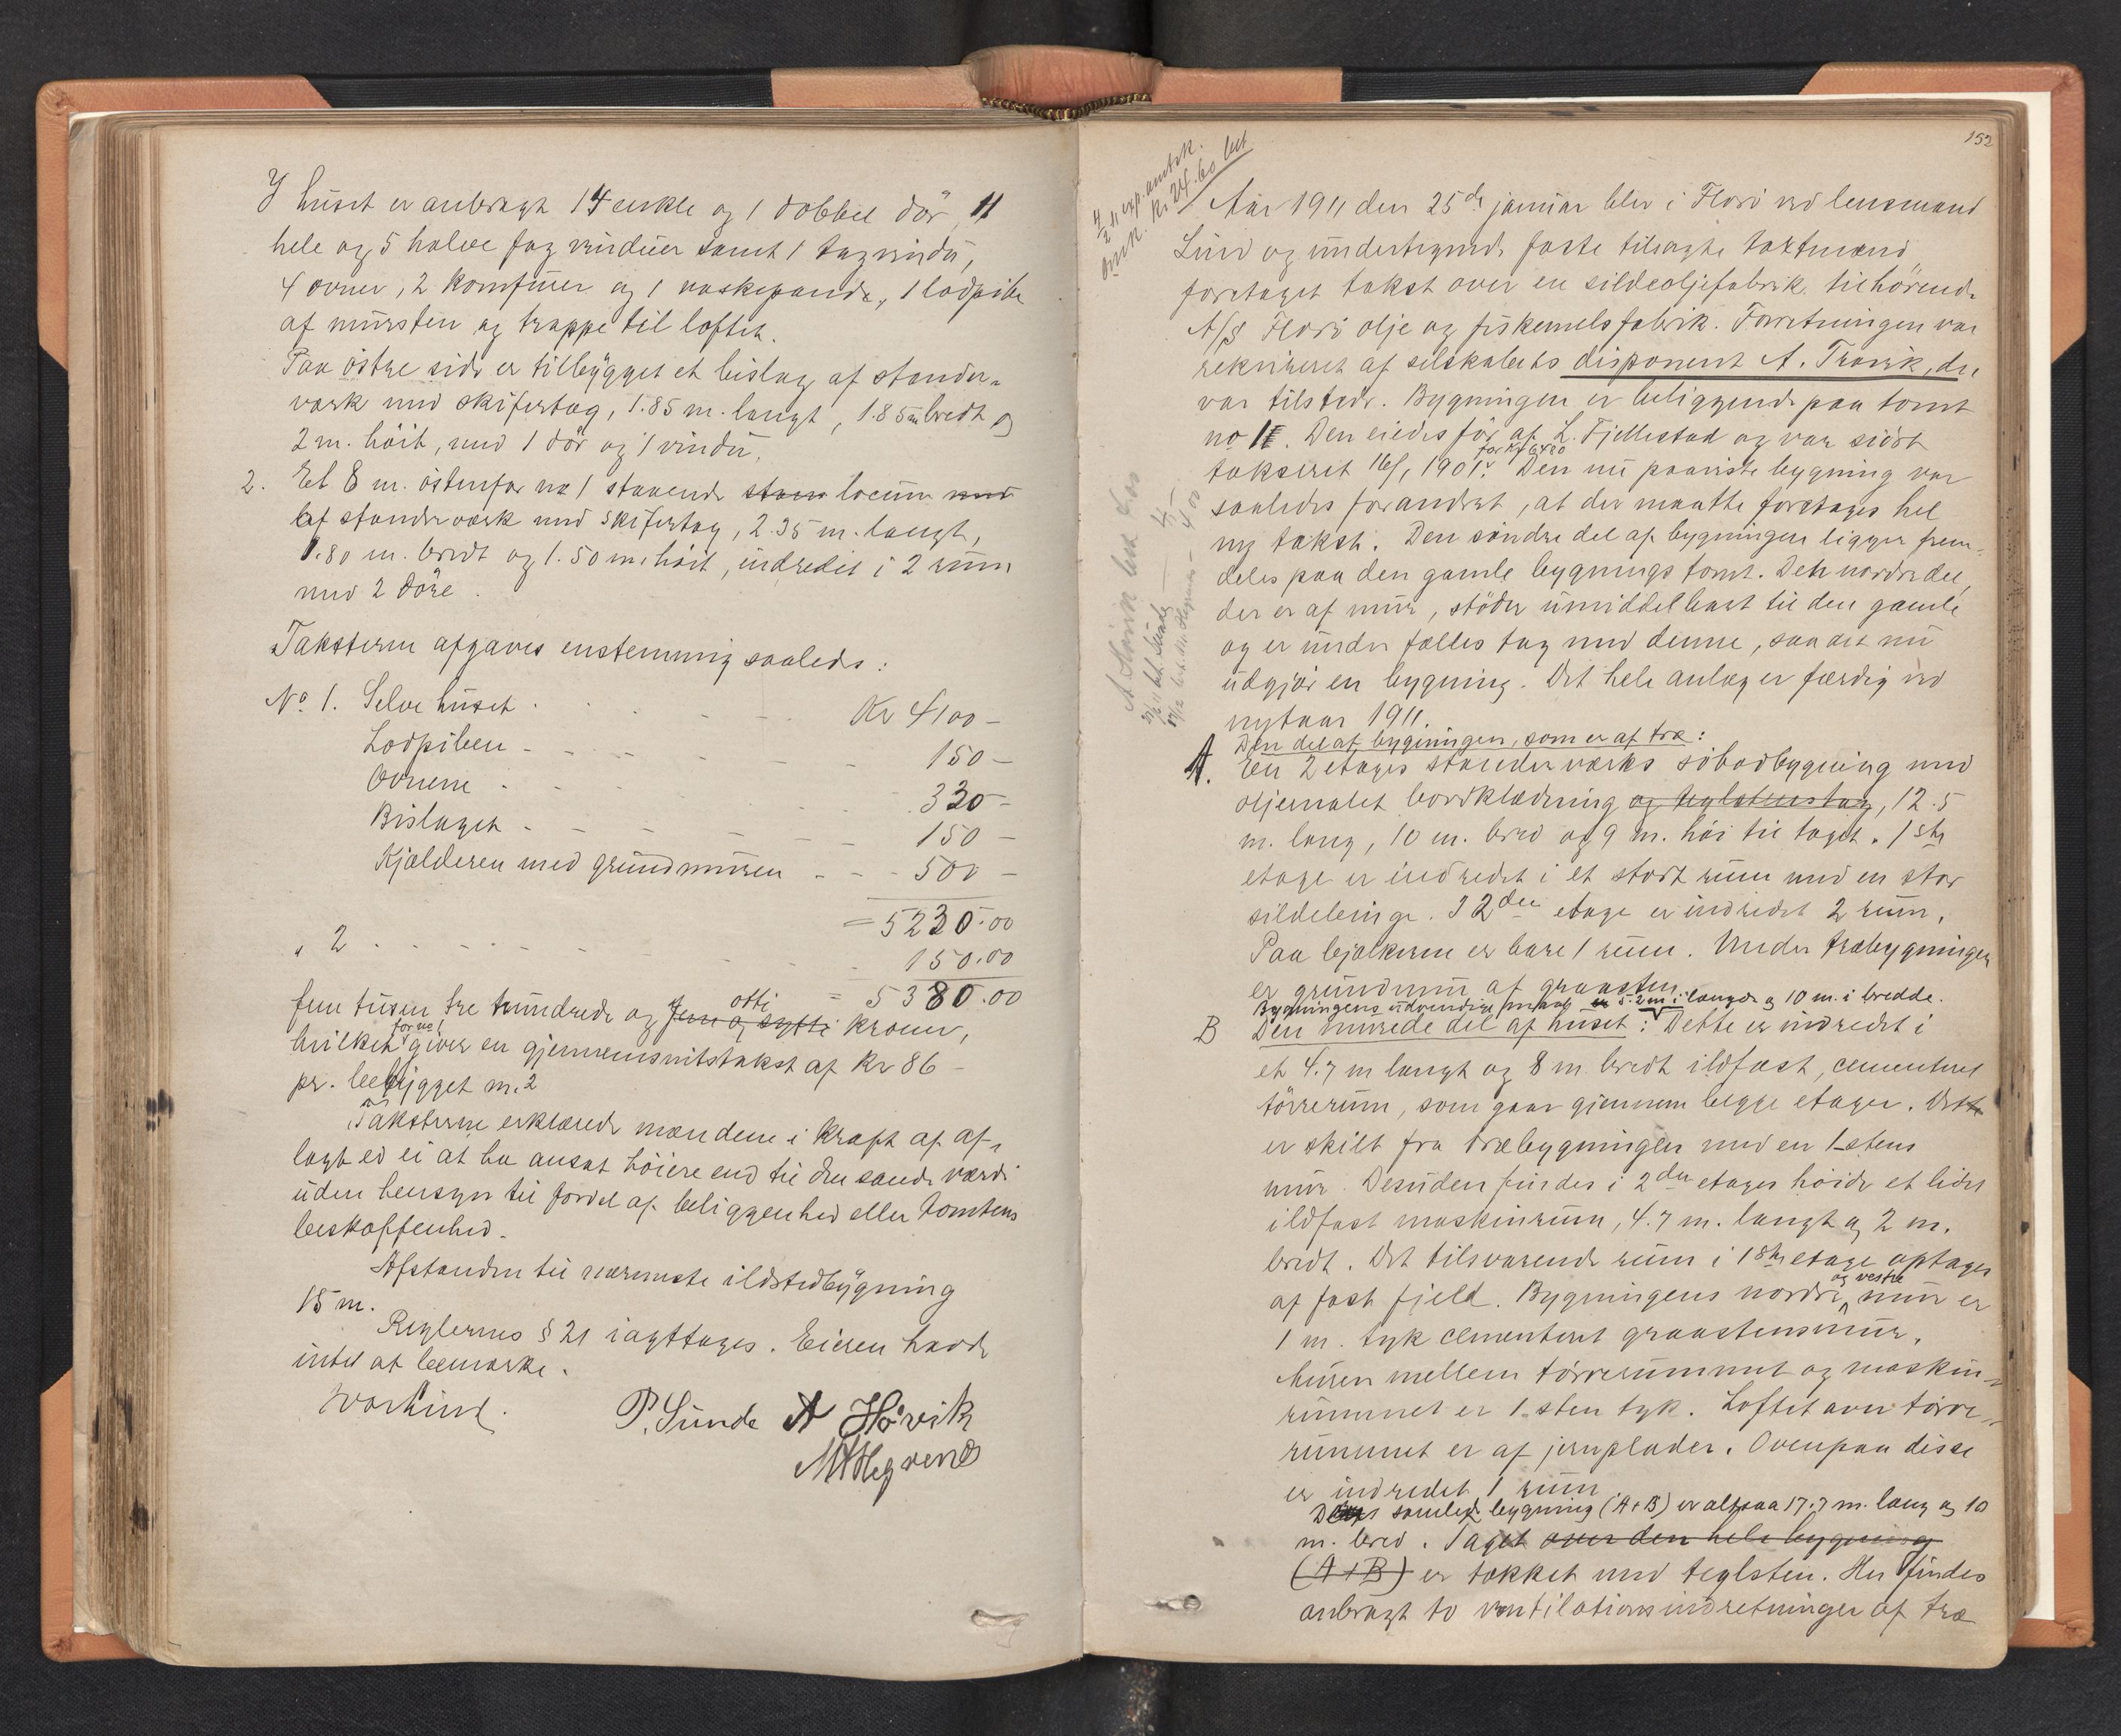 I huset er anbragt 14 enkle og 1 dobbel dør, 11
hele og 5 halve fag vinduer samt 1 tagvindu,
4 ovner, 2 komfurer og 1 vaskepande, 1 lodpibe
af mursten og trappe til loftet.
Paa østre side er tilbygget et bislag af stender-
værk med skifertag, 1.85 m. langt, 1.85 m bredt og
2 m. høit, med 1 dør og 1 vindu.
2. Et 8 m. østenfor no 1 staaende locum
af stenderværk med skifertag, 2.35 m. langt,
1.80 m. bredt og 1.50 m. høit, indredet i 2 rum
med 2 døre.
Taksterne afgaves enstemmig saaledes:
No. 1. Selve huset Kr 4100 -
Lodpiben - 150 -
Ovnene 330 -
Bislaget - 150 -
Kjælderen med grundmuren - 500 -
= 5230.00
" 2 150.00
= 5380.00
fem tusen tre hundrede og fem og sytti otti kroner,
hvilket for no 1 giver en gjennemsnitstakst af Kr 86 -
pr. bebygget m.2
Taksterne erklærede mændene i kraft af af-
lagt ed ei at ha ansat høiere end til den sande værdi
uden hensyn til fordel af beliggenhed eller tomtens
beskaffenhed.
Afstanden til nærmeste ildstedbygning
15 m.
Reglernes § 21 iagttages. Eieren havde
intet at bemærke.
P. Sunde A Høvik
152
Aar 1911 den 25de januar blev i Florø ved lensmand
Lind og undertegnede faste tilsagte takstmænd
foretaget takst over en sildeoljefabrik tilhørende
A/S Florø olje og fiskemelsfabrik. Forretningen var
rekvireret af selskabets disponent A. Træsik, der
var tilstede. Bygningen er beliggende paa tomt
no 11. Den eiedes før af L. Fjellestad og var sidst
takseret 16/1 1901 for Kr 6480. Den nu paaviste bygning var
saaledes forandret, at der maatte foretages hel
ny takst. Den søndre del af bygningen ligger frem-
deles paa den gamle bygnings tomt. Den nordre del,
der er af mur, støder umiddelbart til den gamle
og er under fælles tag med denne, saa det nu
udgjør en bygning. Det hele anlæg er færdig ved
nytaar 1911.
Den del af bygningen, som er af træ:
A. En 2 etages stenderværks søbodbygning med
oljemalet bordklædning og teglstenstag, 12.5
m. lang, 10 m. bred og 9 m. høi til taget. 1ste
etage er indredet i et stort rum med en stor
sildebinge. I 2den etage er indredet 2 rum.
Paa bjælkerne er bare 1 rum. Under træbygningen
er grundmur af graasten.
Bygningens udvendige maal er 5.2 m i længde og 10 m. i bredde.
B Den murede del af huset: Dette er indredet i
et 4.7 m langt og 8 m bredt ildfast, cementeret
tørrerum, som gaar gjennem begge etager. Dette
er skilt fra træbygningen med en 1-stens
mur. Desuden findes i 2den etages høide et lidet
ildfast maskinrum, 4.7 m. langt og 2 m.
bredt. Det tilsvarende rum i 1ste etage optages
af fast fjeld. Bygningens nordre og vestre mur er
1 m. tyk cementeret graastensmur.
Muren mellem tørrerummet og maskin-
rummet er 1-sten tyk. Loftet over tørre-
rummet er af jernplader. Ovenpaa disse
er indredet 1 rum
samlede bygning (A+B) er altsaa 17.7 m. lang og 10
m. bred. Taget over den hele bygning
(A+B) er tækket med teglsten. Her findes
anbragt to ventilationsindretninger af træ